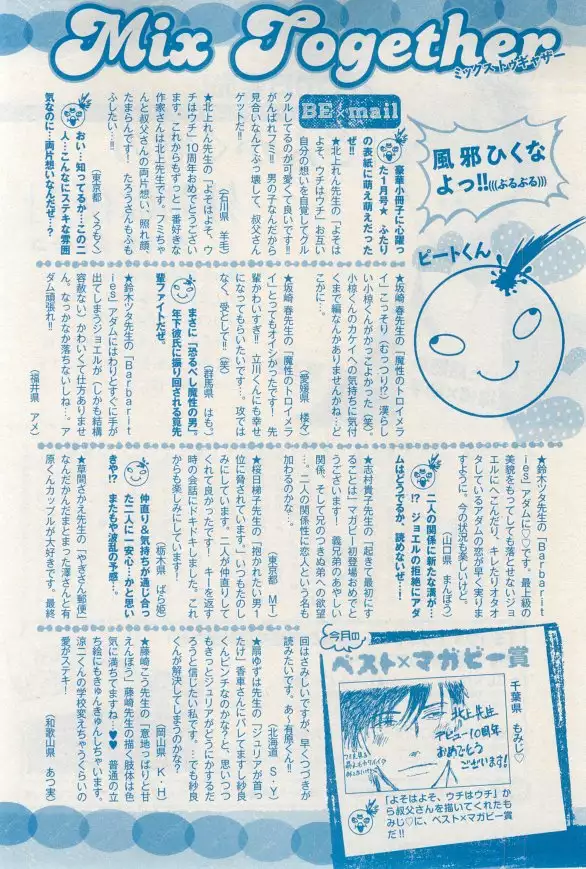 Mix Together
ミックス トゥギャザー
BE×mail
風邪ひくな
よっ!!(((ぶるぶる)))
ビートくん
豪華小冊子に心躍っ
た1月号★ ふたり
の表紙に萌え萌えだった
ぜ!!
★北上れん先生の「よそは
よそ、ウチはウチ」お互い
自分の想いを自覚してグル
グルしてるのが可愛くて良いです!!
がんばれフミ!! 男の子なんだから
見合いなんてぶっ壊して、叔父さん
ゲットだ!!
（石川県 羊毛）
★北上れん先生の「よそはよそ、ウ
チはウチ」10周年おめでとうござい
ます。これからもずっと一番好きな
作家さんは北上先生です。フミちゃ
んと叔父さんの両片想い、照れ顔、
たまらんです! たろうさんもふも
ふしたい…!!
（東京都 くろもく）
おい…知ってるか…この二
人…こんなにステキな雰囲
気なのに…両片想いなんだぜ…?
★坂崎春先生の「魔性のトロイメラ
イ」こっそり（むっつり?）漢らし
い小椋くんがかっこよかった（笑）。
小椋くんのカケイへの気持ちに気付
くまで編なんかありませんかね…ど
こかに…。
（愛媛県 楼々）
★坂崎春先生の「魔性のトロイメラ
イ」とってもオイシかったです! 先
輩かわいすぎ!! 立川くんにも幸せ
になってもらいたいです…。攻では
なく、受として!!（笑）
（群馬県 はも）
まさに「恐るべし魔性の男」。
年下彼氏に振り回される筧先
輩ファイトだぜ。
★鈴木ツタ先生の「Barbarit
ies」アダムにはわりとすぐに手が
出てしまうジョエルが（しかも結構
容赦ない）かわいくて仕方ありませ
ん。なっかなか落ちないしね…。ア
ダム頑張れ!!
（福井県 アメ）
★鈴木ツタ先生の「Barbarit
ies」アダムに♡♡です。最上級の
美貌をもってしても落とせないジョ
エルにへこんだり、キレたりオタオ
タしているアダムの恋が早く実りま
すように。今の状況も楽しいけど。
（山口県 まんぼう）
二人の関係に新たな漢が…
!? ジョエルの拒絶にアダ
ムはどうでるか、読めないぜ…!
★志村貴子先生の「起きて最初にす
ることは」マガビー初登場おめでと
うございます! 義兄弟のあやしい
関係、そして兄のつきぬ弟への欲望
…。二人の関係性に恋人という名も
加わるのかな…。
（東京都 MT）
★桜日梯子先生の「抱かれたい男1
位に脅されています。」いつもたのし
みにしています。二人が仲直りして
くれて良かったです! キーを返す
時の会話にドキドキしました。これ
からも楽しみにしています!
（栃木県 ばら姫）
仲直り&気持ちが通じ合っ
た二人に一安心…かと思い
きや!? またもや波乱の予感…。
★草間さかえ先生の「やぎさん郵便」
なんだかんだまとまった澤さんと有
原くんカップルが大好きです。最終
回はさみしいですが、早くつづきが
読みたいです。あ〜有原くん!!
（北海道 S・Y）
★扇ゆずは先生の「ジュリアが首っ
たけ」香車さんにバレてますし紗良
くんピンチなのかな?と、思いつつ
もきっとジュリアがどうにかするだ
ろうと信じたい私です。…でも紗良
くんが解決してしまうのかな?
（岡山県 K・H）
★藤崎こう先生の「意地っぱりと甘
えんぼう」藤崎先生の描く肢体は色
気に満ちてますね…♥♥ 普通の立
ち絵にもきゅんきゅんしちゃいます。
涼二くんの学校変えちゃうくらいの
愛がステキ!
（和歌山県 あつ実）
今月の
ベスト×マガビー賞
千葉県 もみじ♡
北上先生
デビュー10周年
おめでとう
ございます!
「よそはよそ、ウチはウチ」か
ら叔父さんを描いてくれたも
みじ♡に、ベスト×マガビー賞
だ!!